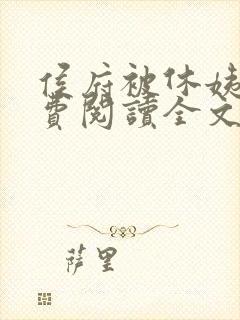 侯府被休姨
費閱讀全文
薩里